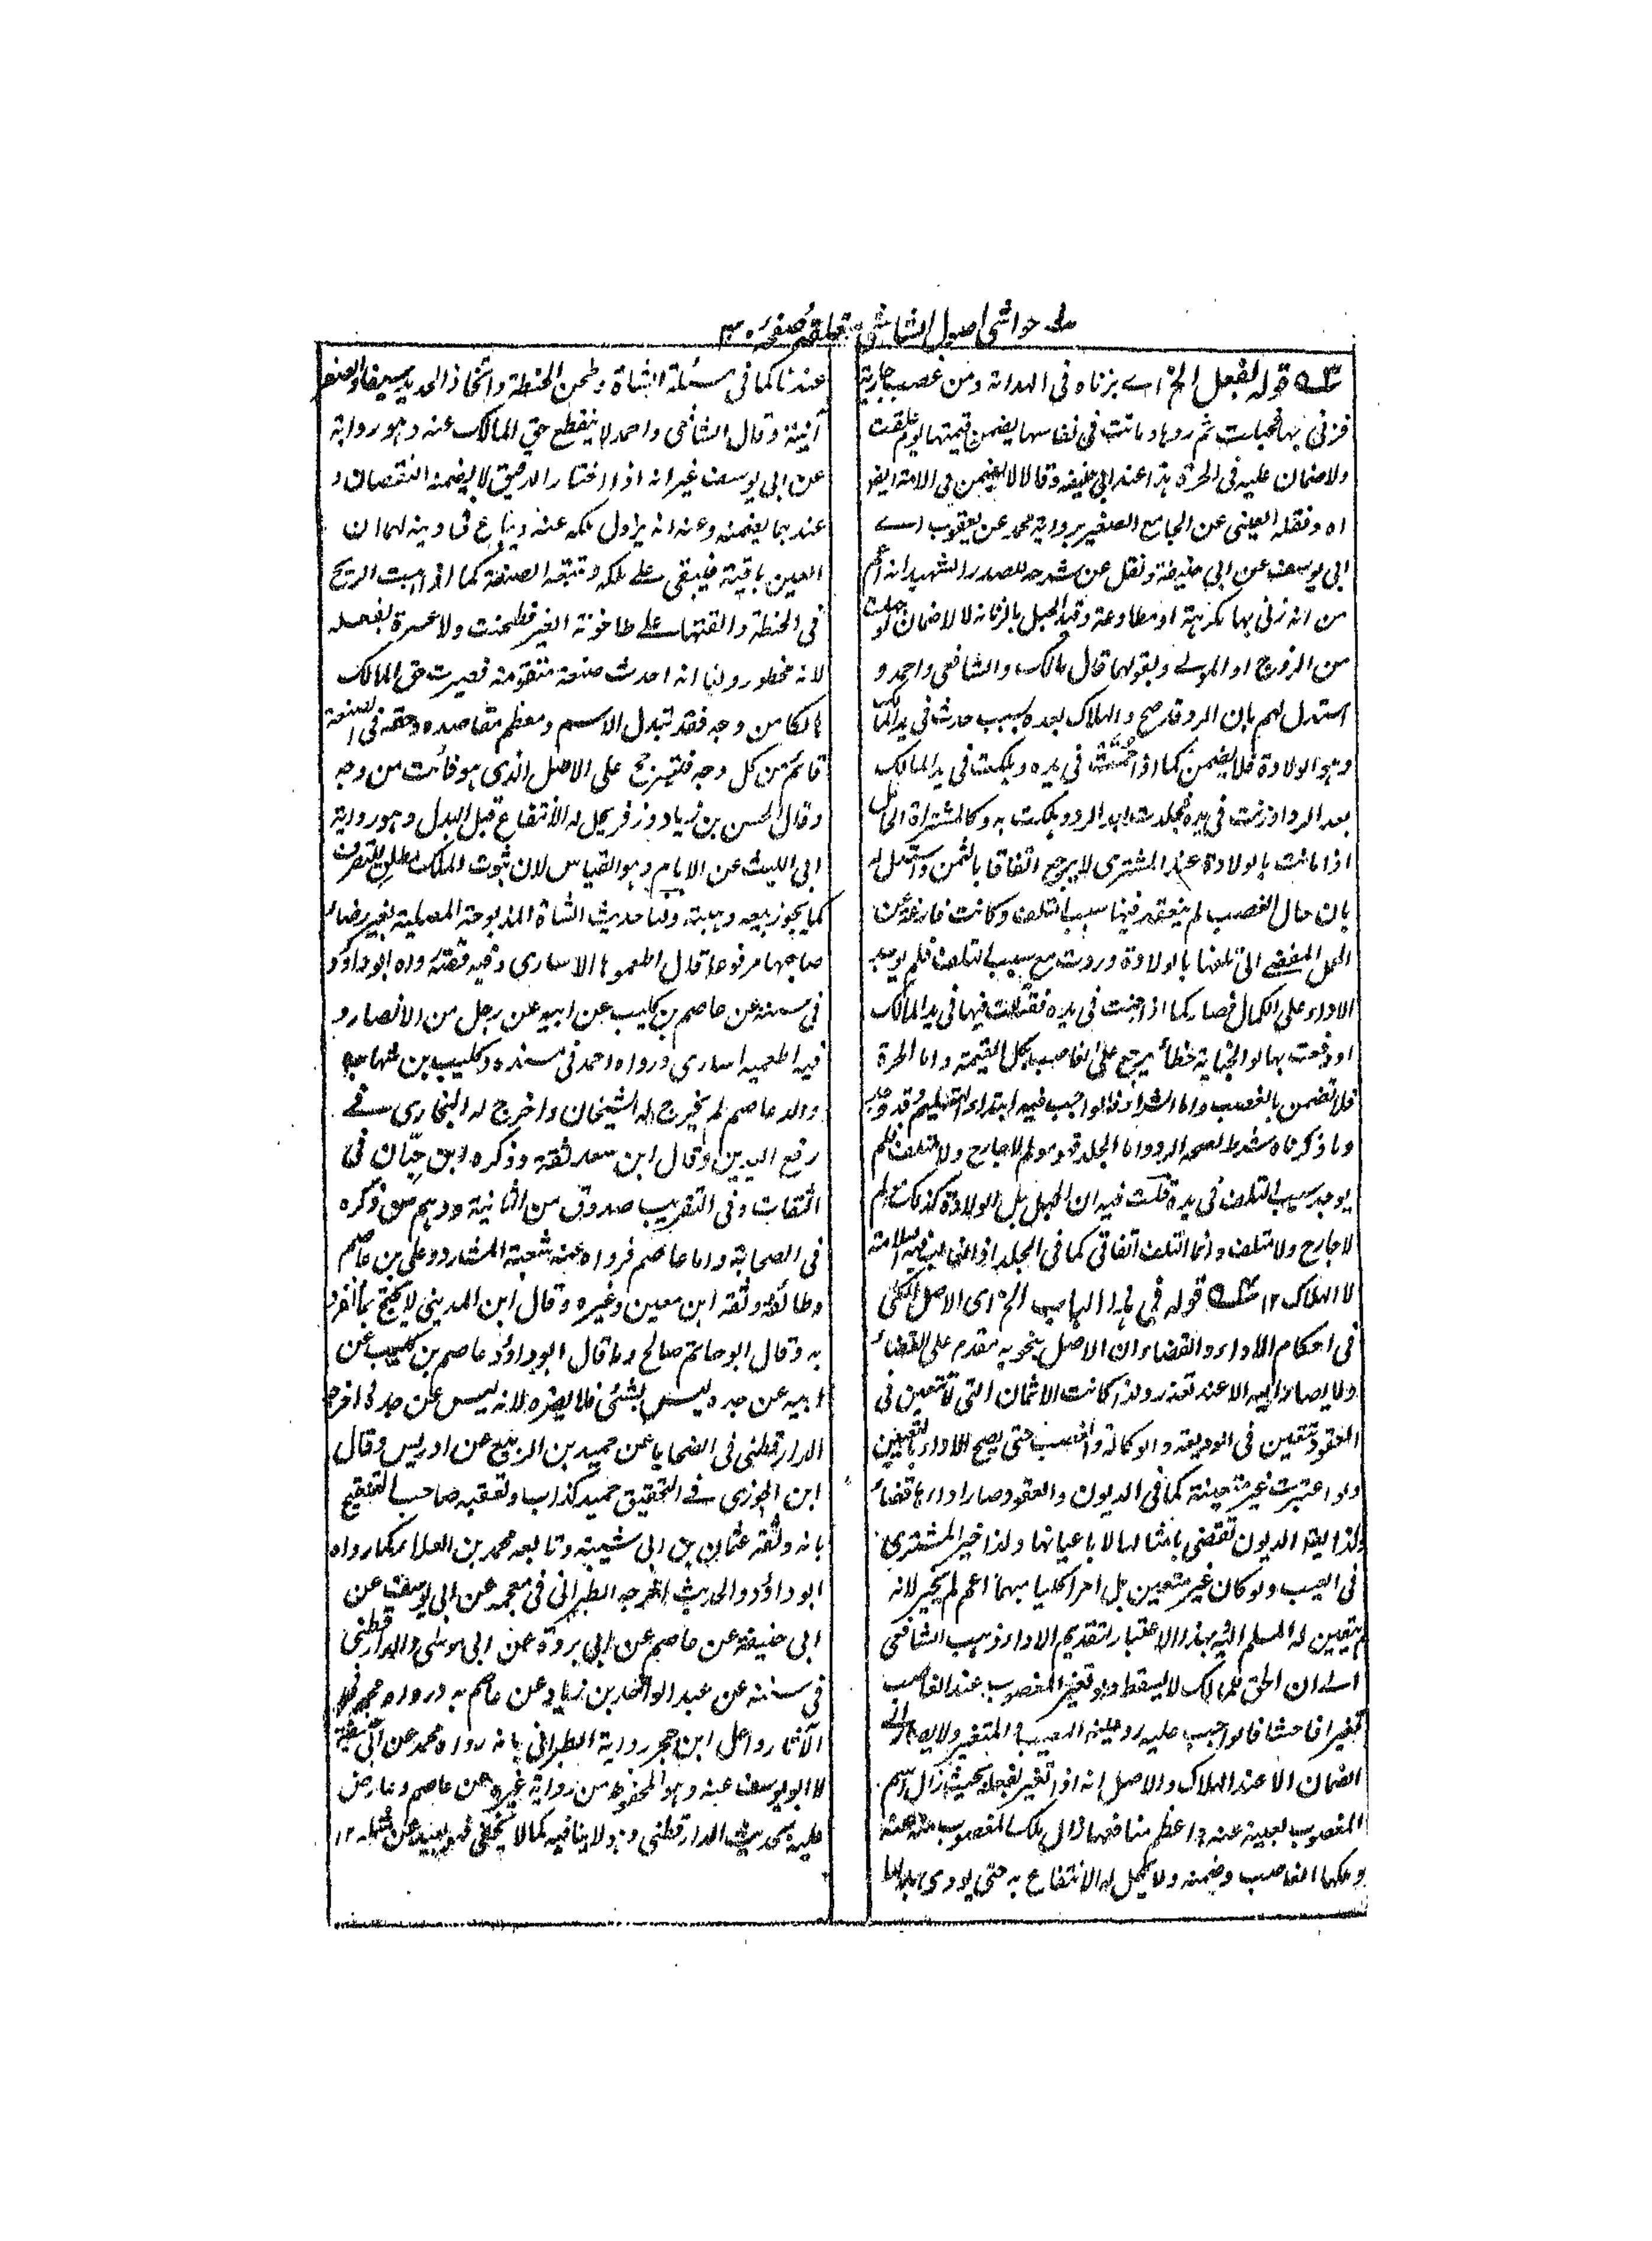 حواشی اصول الشاشی متعلقہ صفحہ ۳۰
قوله لفعل الخ اے بزناه فی الهدایة ومن غصب جاریة
فزنی بها فحبلت ثم ردها وماتت فی نفاسها یضمن قیمتها یوم علقت
ولا ضمان علیه فی الحرة هذا عند ابی حنیفة وقالا لا یضمن فی الامة ایضا
اه ونقله العینی عن الجامع الصغیر بروایة محمد عن یعقوب اے
ابی یوسف عن ابی حنیفة ونقل عن شرحه للصدر الشهید انه اعم
من انه زنی بها مکرهة او مطاوعة وقید الحبل بالزنا لانه لا ضمان لو حبلت
من الزوج او المولے وبقولهما قال مالک والشافعی واحمد و
استدل لهم بان الرد قد صح والهلاک بعده بسبب حادث فی ید المالک
وهو الولادة فلا یضمن کما اذا حمت فی یده وهلکت فی ید المالک
بعد الرد او زنت فی یده فجلدت بعد الرد وهلکت به وکالمشتراة الحامل
اذا ماتت بالولادة عند المشتری لا یرجع اتفاقا بالثمن واستدل له
بان حال الغصب لم ینعقد فیها سبب التلف وکانت فارغة عن
الحمل المفضے الی تلفها بالولادة وردت مع سبب التلف فلم یوجد
الاداء علی الکمال فصار کما اذا جنت فی یده فقتلت فیها فی ید المالک
او دفعت بها لو الجنایة خطأ یرجع علی الغاصب بکل القیمة واما الحرة
فلا تضمن بالغصب واما الشراء فالواجب فیه ابتداء التسلیم وقد وجد
وما ذکرناه شرط لصحة الرد واما الجلد فهو مولم لا جارح ولا متلف فلم
یوجد سبب التلف فی یده قلت فیه ان الحبل بل الولادة کذلک مولم
لا جارح ولا متلف وانما التلف اتفاقی کما فی الجلد اذ الغالب فیه السلامة
لا الهلاک ۱۲ قوله فی هذا الباب الخ ای الاصل الکلی
فی احکام الاداء والقضاء ان الاصل ینحو به مقدم علی القضاء
ولا یصار الیه الا عند تعذره ولذا کانت الاثمان التی لا تتعین فی
العقود تتعین فی الودیعة والوکالة والغصب حتی یصح الاداء بالتعیین
ولو اعتبرت غیر متعینة کما فی الدیون والعقود صار اداؤها قضاء
ولذا یقال الدیون تقضی بامثالها لا باعیانها ولذا خیر المشتری
فی العیب ولو کان غیر متعین بل امرا کلیا مبهما اعم لم یخیر لانه
لم یتعین له المسلم الیه بهذا الاعتبار لتقدیم الاداء ذهب الشافعی
الے ان الحق للمالک لا یسقط ولو تغیر المغصوب عند الغاصب
تغیرا فاحشا فالواجب علیه رد عینه المعیب المتغیر ولا یصار الے
الضمان الا عند الهلاک والاصل انه اذا تغیر بفعله بحیث زال اسم
المغصوب بعینه عنه واعظم منافعها زال ملک المغصوب منه عنه
وملکها الغاصب وضمنه ولا یحل له الانتفاع به حتی یودی بدلها
عندنا کما فی مسئلة الشاة وطحن الحنطة واتخاذ الحدید سیفا والصفر
آنیة وقال الشافعی واحمد لا ینقطع حق المالک عنه وهو روایة
عن ابی یوسف غیر انه اذا اختار الدقیق لا یضمنه النقصان و
عندهما یضمنه وعنه انه یزول ملکه عنه ویباع فی دینه لهما ان
العین باقیة فیبقی علے ملکه وتتبعه الصنعة کما اذا هبت الریح
فی الحنطة والقتها علے طاحونة الغیر فطحنت ولا عبرة بفعله
لانه محظور ولنا انه احدث صنعة متقومة فصیرت حق المالک
هالکا من وجه فقد تبدل الاسم ومعظم مقاصده وحقه فی الصنعة
قائم من کل وجه فیترجح علی الاصل الذی هو فائت من وجه
وقال الحسن بن زیاد وزفر یحل له الانتفاع قبل البدل وهو روایة
ابی اللیث عن الامام وهو القیاس لان ثبوت الملک مطلق للتصرف
کما یجوز بیعه وهبته ولنا حدیث الشاة المذبوحة المصلیة بغیر رضاء
صاحبها مرفوعا قال اطعموها الاساری وفیه قصة رواه ابو داؤد
فی سننه عن عاصم بن کلیب عن ابیه عن رجل من الانصار و
فیه اطعمیه اساری ورواه احمد فی مسنده وکلیب بن شهاب
والد عاصم لم یخرج له الشیخان واخرج له البخاری فے
رفع الیدین وقال ابن سعد ثقة وذکره ابن حبان فی
الثقات وفی التقریب صدوق من الثانیة ووهم من ذکره
فی الصحابة واما عاصم فرواه عنه شعبة السفیانان وعلی بن عاصم
وطائفة وثقه ابن معین وغیره وقال ابن المدینی لا یحتج بما انفرد
به وقال ابو حاتم صالح وما قال ابو داؤد عاصم بن کلیب عن
ابیه عن جده لیس بشئی فلا یضره لانه لیس عن جده اخرجه
الدارقطنی فی الضحایا عن حمید بن الربیع عن ادریس وقال
ابن الجوزی فے التحقیق حمید کذاب وتعقبه صاحب التنقیح
بانه وثقه عثمان بن ابی شیبة وتابعه محمد بن العلاء کما رواه
ابو داؤد والحدیث اخرجه الطبرانی فی معجمه عن ابی یوسف عن
ابی حنیفة عن عاصم عن ابی بردة عن ابی موسی والدارقطنی
فی سننه عن عبد الواحد بن زیاد عن عاصم به ورواه محمد فی
الآثار واعل ابن حجر روایة الطبرانی بانه رواه محمد عن ابی حنیفة
لا ابو یوسف عنه وهو المحفوظ من روایة غیره عن عاصم وعارض
علیه بحدیث الدارقطنی وهو لا ینافیه کما لا یخفی فهو بعید عن مثله ۱۲